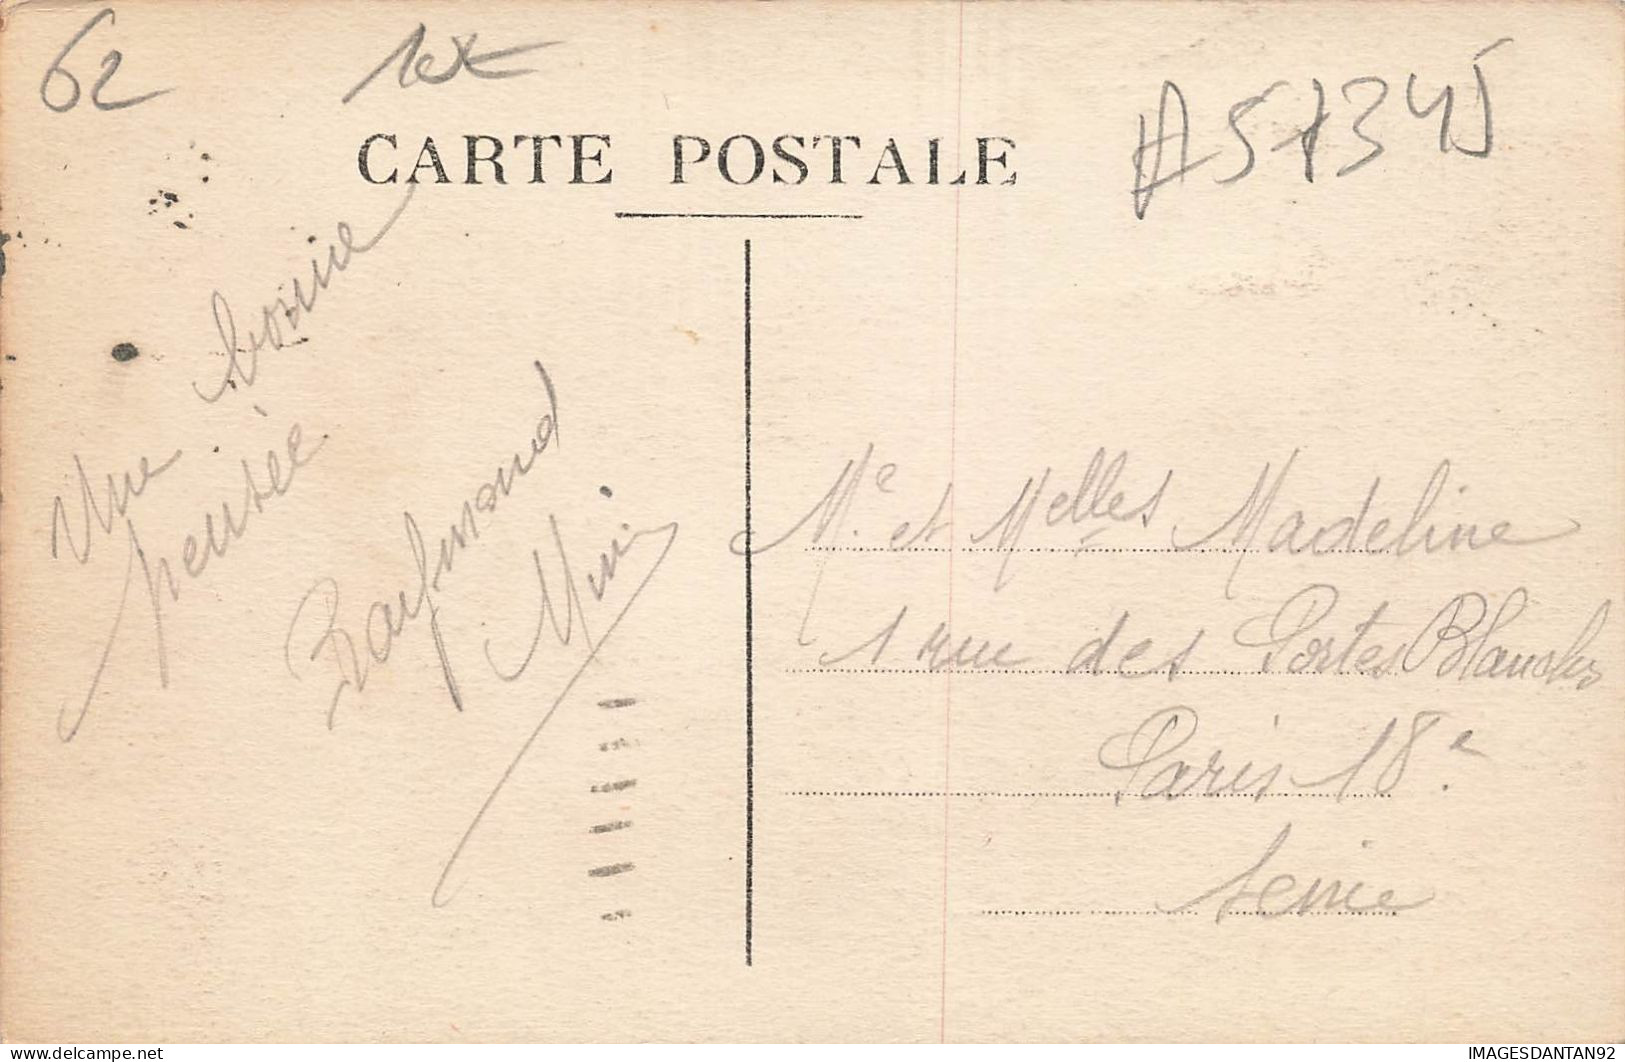 62
CARTE POSTALE
A57345
Une bonne
pensée
Raymond
Mimi
Me et Melles Madeline
1 rue des Portes Blanches
Paris 18e.
Seine
IMAGESDANTAN92